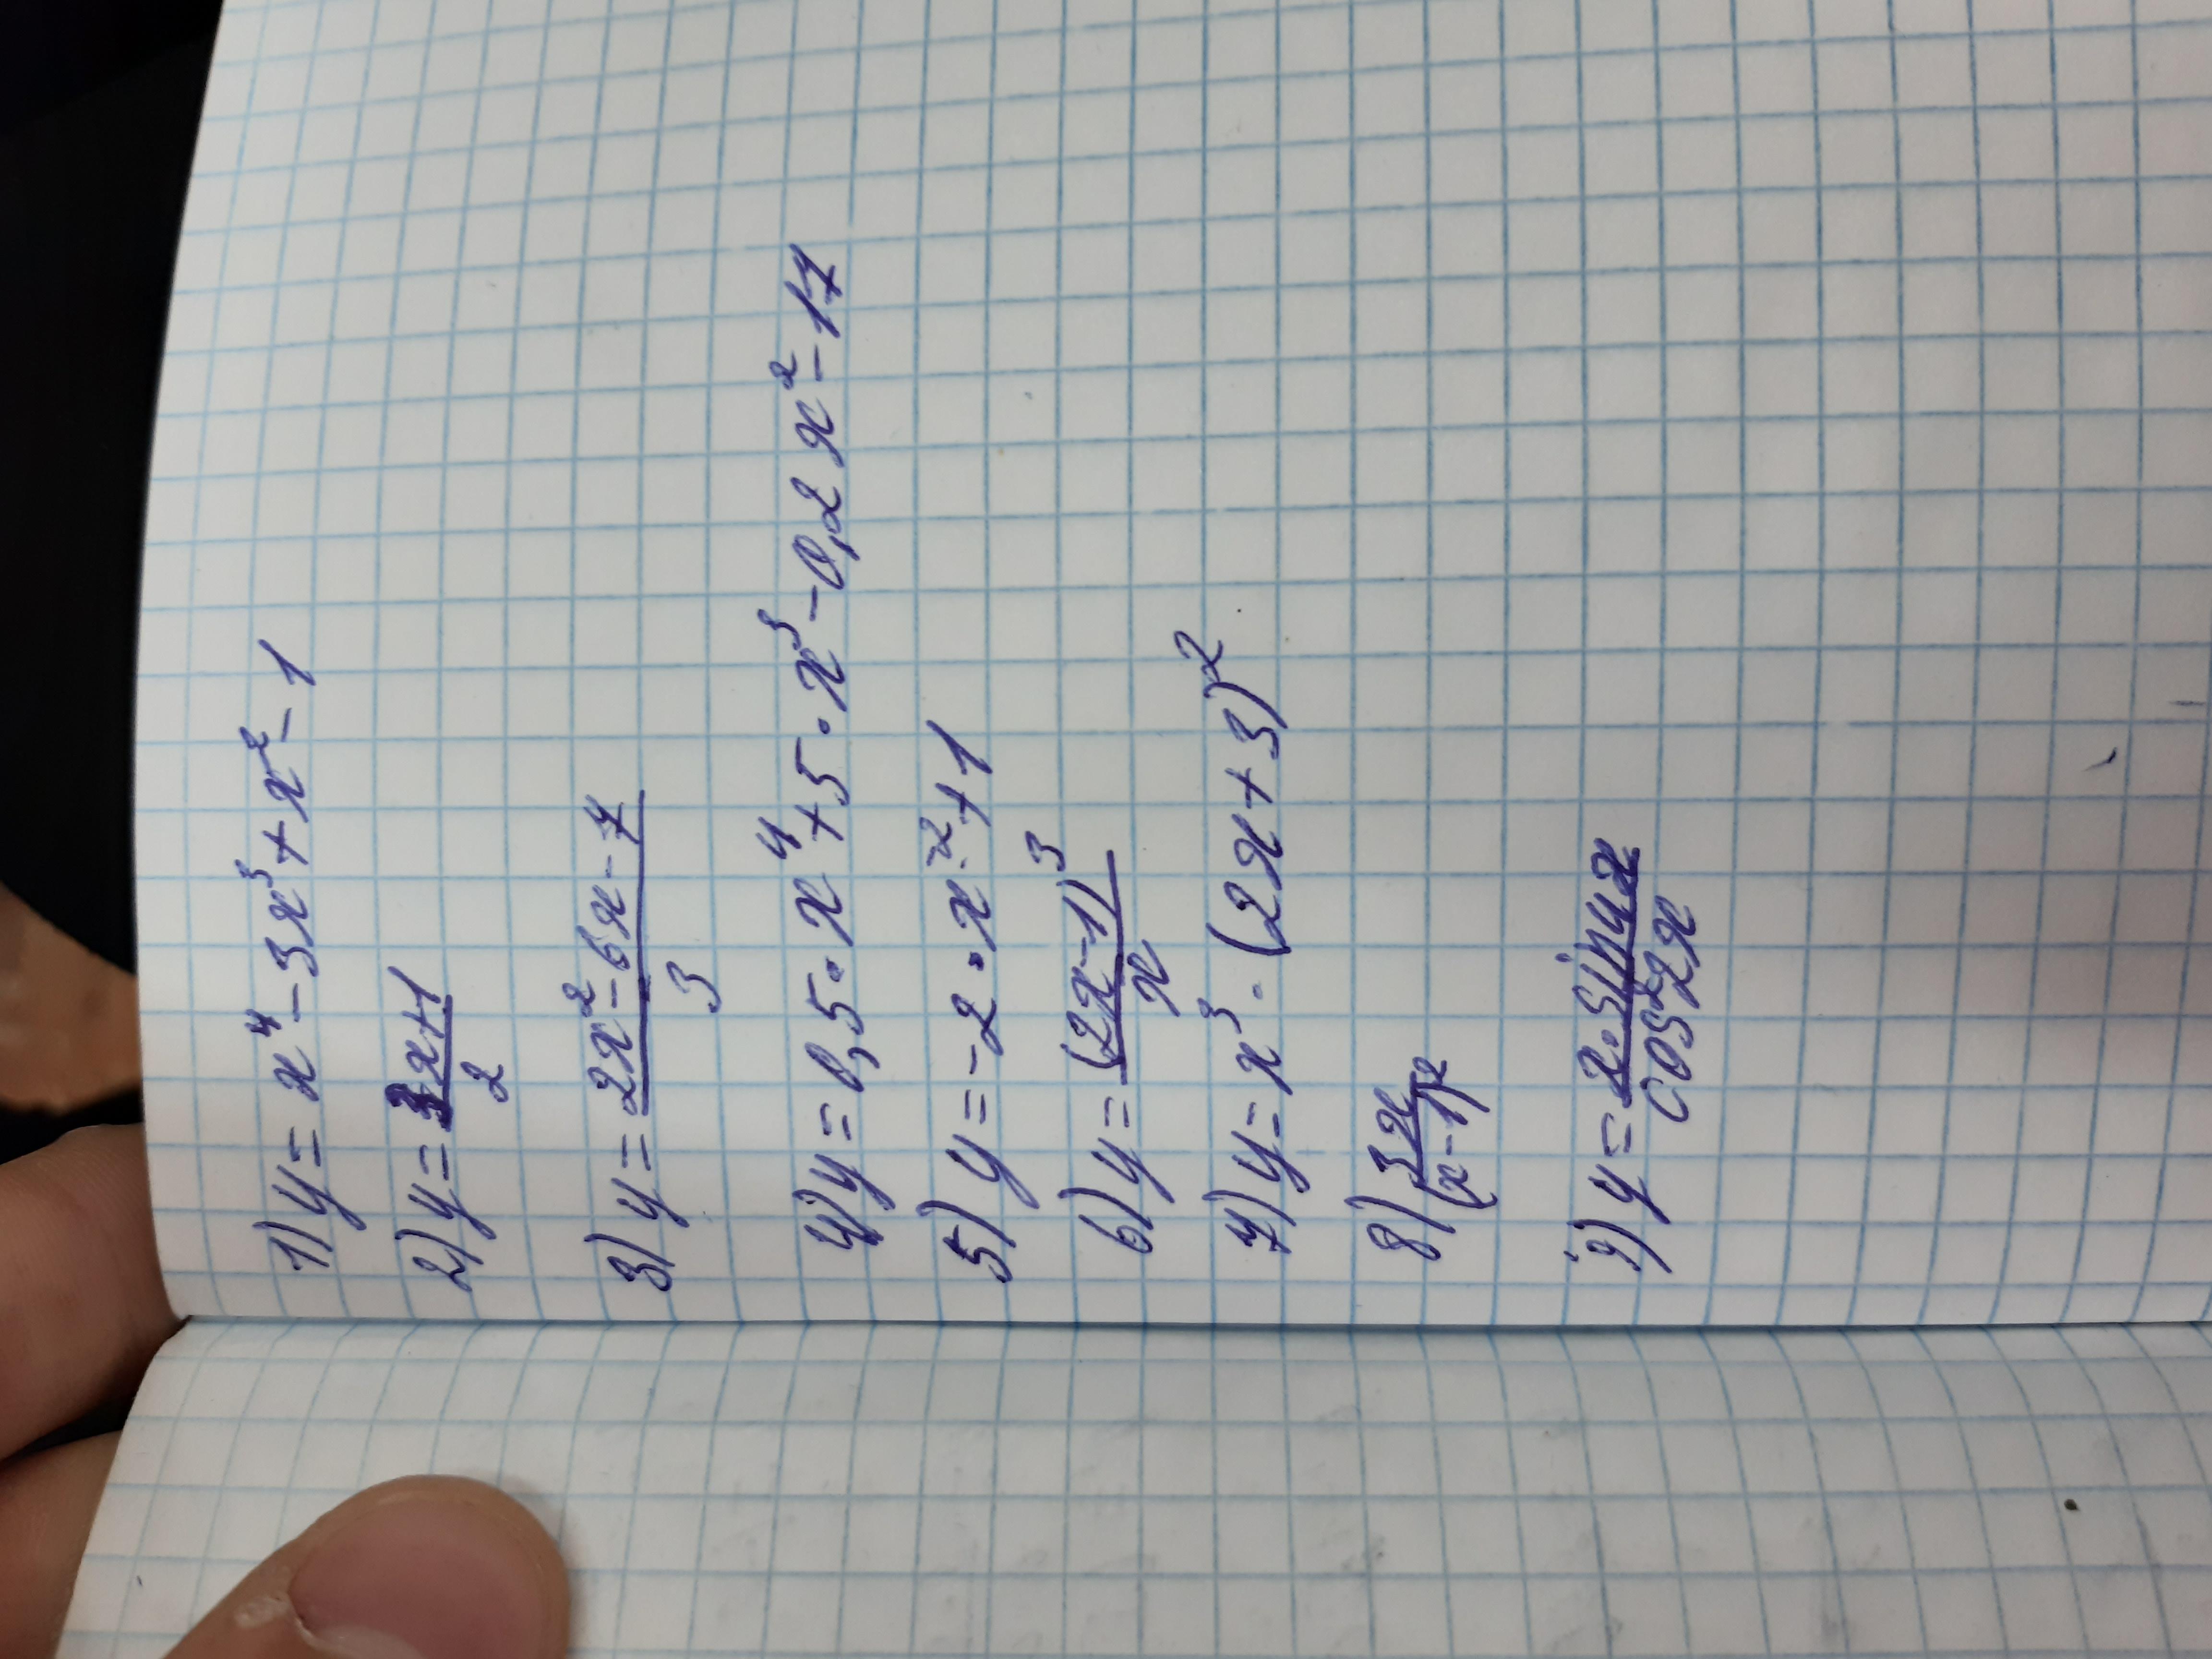 1) y = x⁴ - 3x³ + x² - 1
2) y = 3x+1
2
3) y = 2x² - 6x - 7
3
4) y = 0,5 · x⁴ + 5 · x³ - 0,2 x² - 17
5) y = -2 · x⁻² + 1
6) y = (2x-1)³
x
7) y = x³ · (2x+3)²
8) 3x
(x-1)²
9) y = x · sin4x
cos²2x